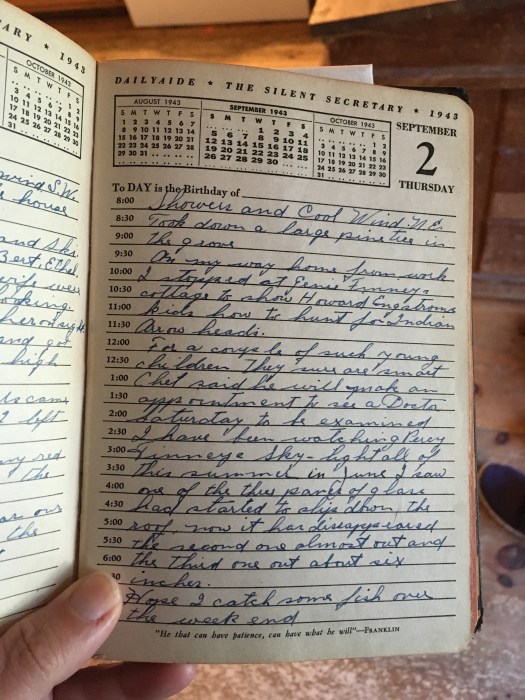 ARY ★ 1943
OCTOBER 1943
S M T W T F S
wind S.W.
house
and Skis
Bert, Ethel,
wife were
ooking
and got
high
came
left
ny red
the
our
the
DAILYAIDE ★ THE SILENT SECRETARY ★ 1943
AUGUST 1943
S M T W T F S
1 2 3 4 5 6 7
8 9 10 11 12 13 14
15 16 17 18 19 20 21
22 23 24 25 26 27 28
29 30 31
SEPTEMBER 1943
S M T W T F S
1 2 3 4
5 6 7 8 9 10 11
12 13 14 15 16 17 18
19 20 21 22 23 24 25
26 27 28 29 30
OCTOBER 1943
S M T W T F S
1 2
3 4 5 6 7 8 9
10 11 12 13 14 15 16
17 18 19 20 21 22 23
24 25 26 27 28 29 30
31
SEPTEMBER
2
THURSDAY
To DAY is the Birthday of
8:00 Showers and Cool Wind N.E.
8:30 Took down a large pine tree in
9:00 the grove
9:30 On my way home from work
10:00 I stopped at Ernie Finneys
10:30 cottage to show Howard Engstroms
11:00 kids how to hunt for Indian
11:30 Arrow heads.
12:00 For a couple of such young
12:30 children They sure are smart
1:00 Chet said he will make an
1:30 appointment to see a Doctor
2:00 Saturday to be examined
2:30 I have been watching Percy
3:00 Finneys Sky-light all of
3:30 this summer in June I saw
4:00 one of the three panes of glass
4:30 had started to slip down the
5:00 roof, now it has disappeared
5:30 the second one almost out and
6:00 the third one out about six
30 inches.
Hope I catch some fish over
the week end
"He that can have patience, can have what he will"—FRANKLIN